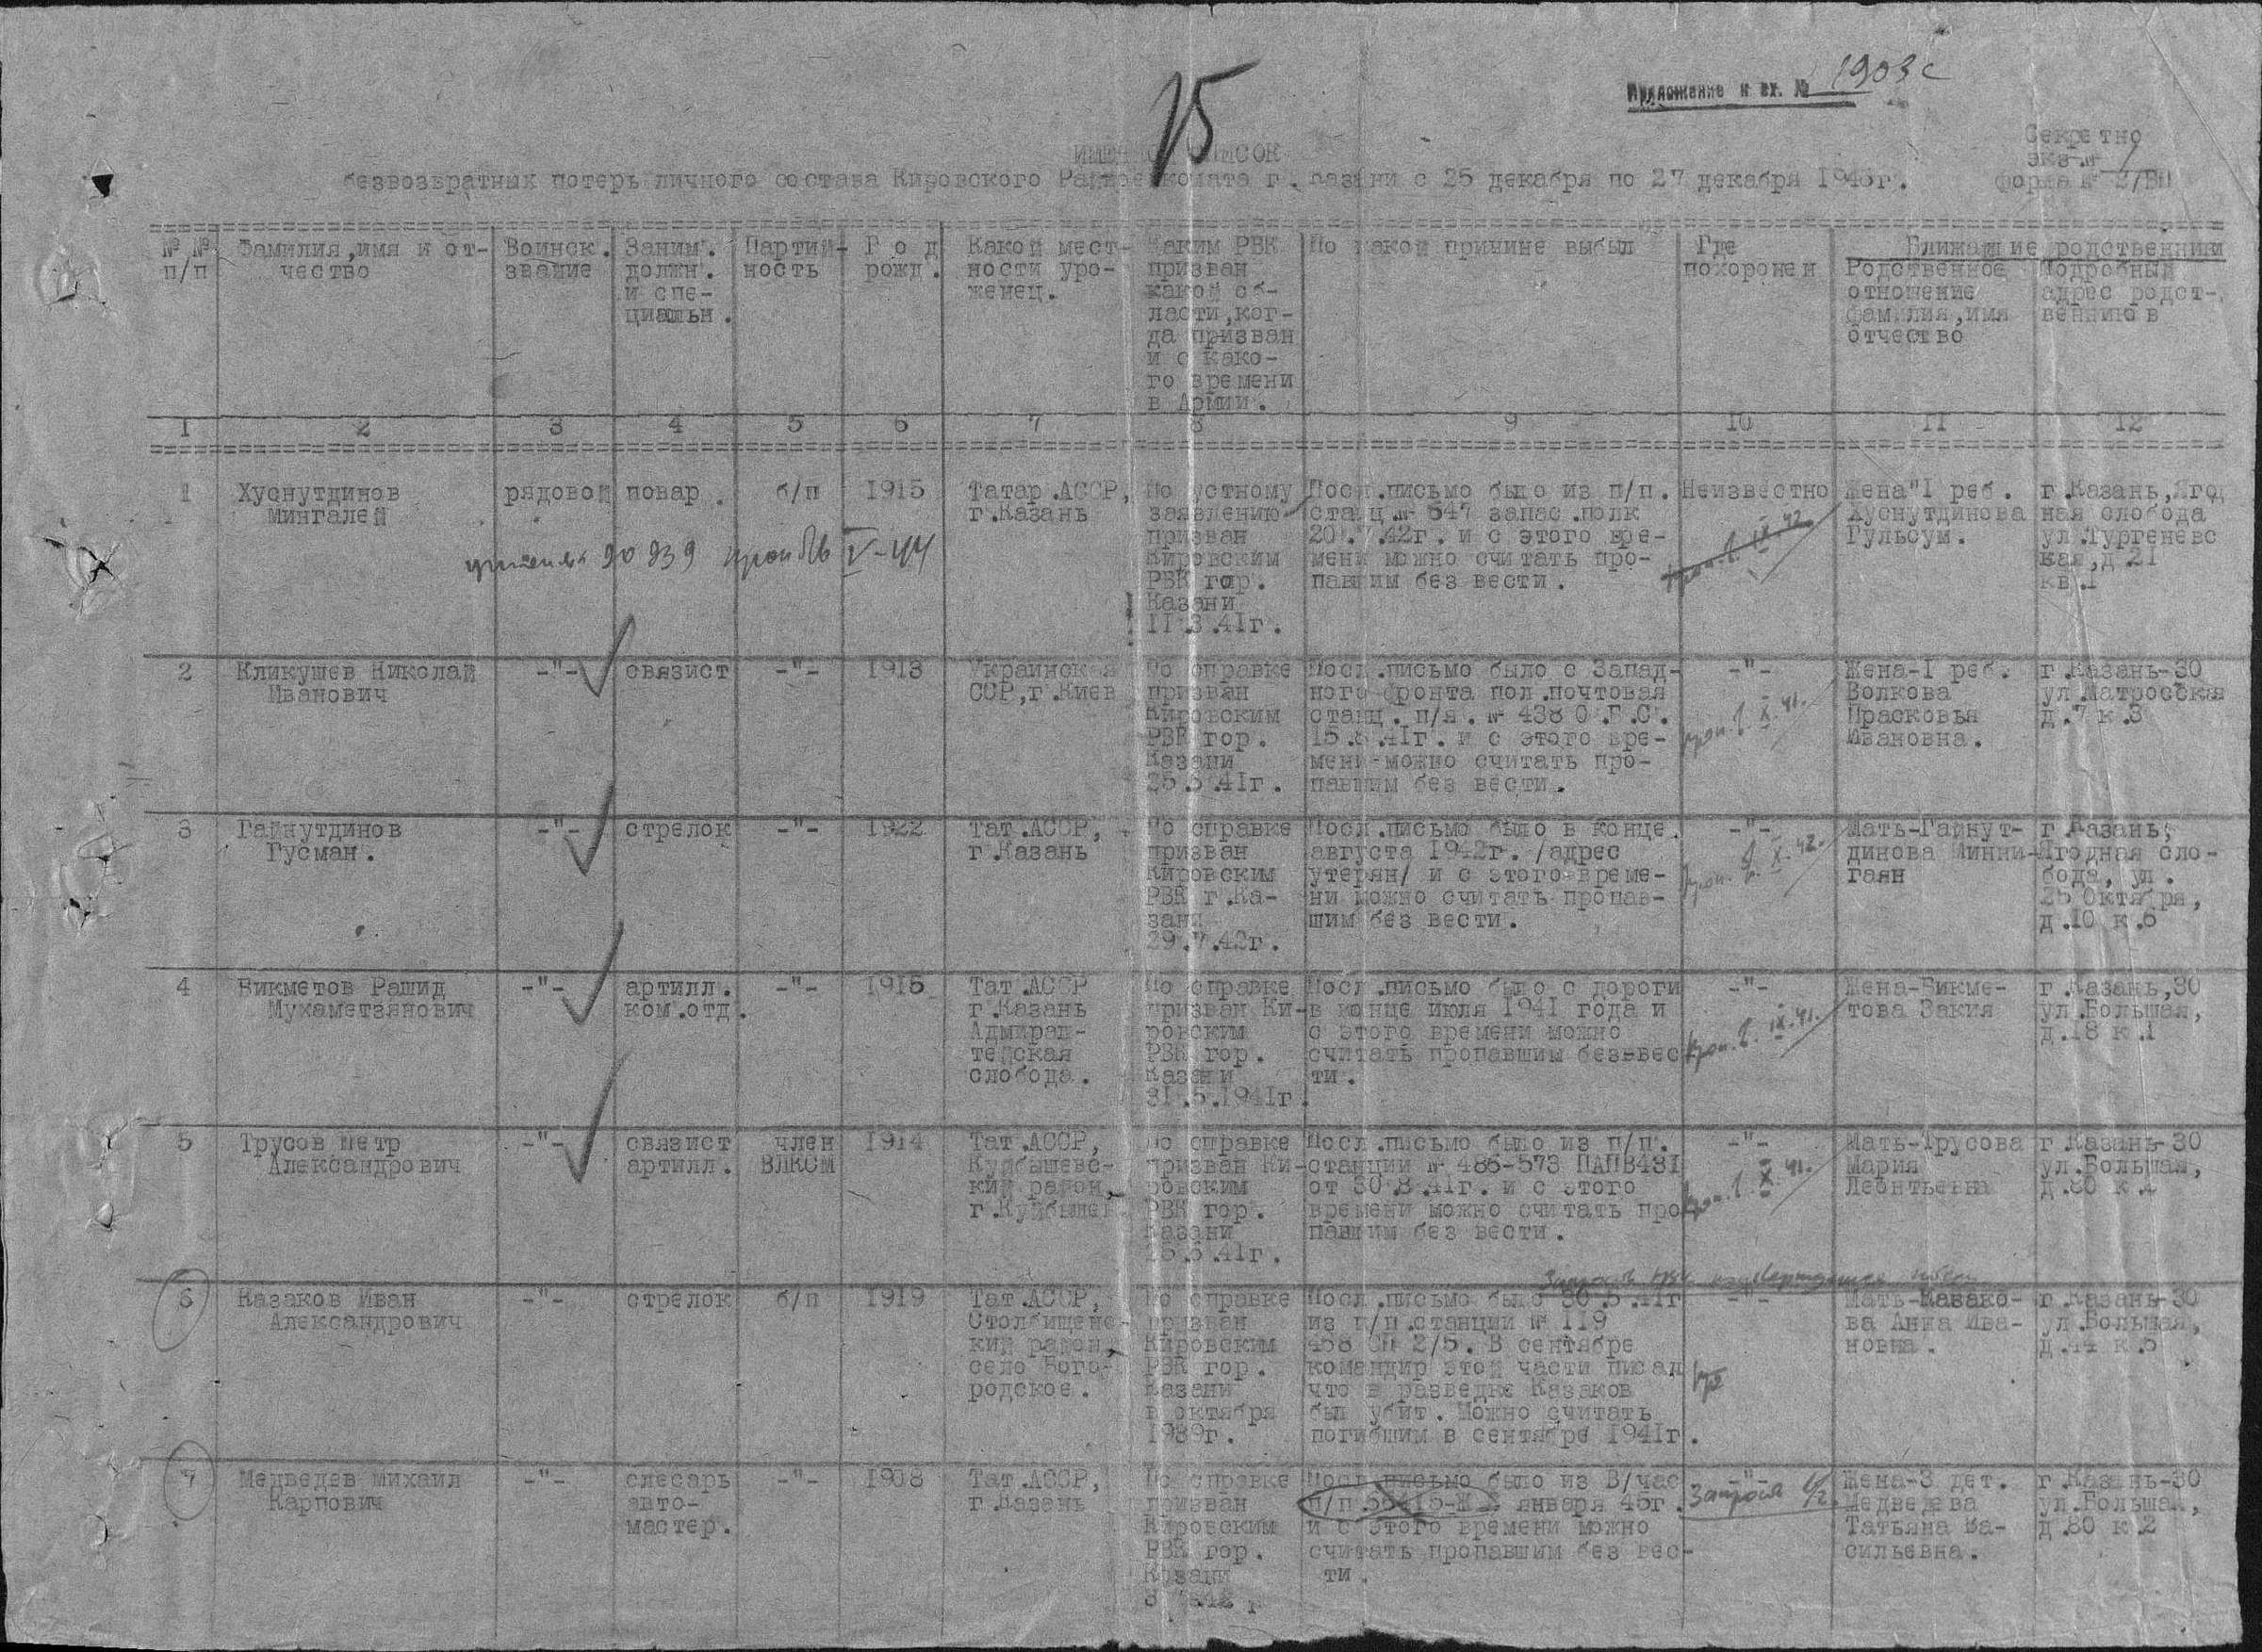 15
Приложение к вх. № 1903с
Секретно
экз.№ 1
форма № 2/БП
ИМЕННОЙ СПИСОК
безвозвратных потерь личного состава Кировского Райвоенкомата г. Казани с 25 декабря по 27 декабря 1946г.
№ №
п/п
Фамилия,имя и от-
чество
Воинск.
звание
Заним.
должн.
и спе-
циальн.
Партий-
ность
Г о д
рожд.
Какой мест-
ности уро-
женец.
Каким РВК
призван
какой об-
ласти,ког-
да призван
и с како-
го времени
в Армии.
По какой причине выбыл
Где
похоронен
Ближайшие родственники
Родственное
отношение
фамилия,имя
отчество
Подробный
адрес родст-
венников
1 2 3 4 5 6 7 8 9 10 11 12
1
Хуснутдинов
Мингалей
рядовой
повар.
б/п
1915
Татар.АССР,
г.Казань
По устному
заявлению
призван
Кировским
РВК гор.
Казани
11.3.41г.
Посл.письмо было из п/п.
станц.№ 547 запас.полк
20.7.42г. и с этого вре-
мени можно считать про-
павшим без вести.
Неизвестно
проп. б. IX.42.
Жена"1 реб.
Хуснутдинова
Гульсум.
г.Казань,Ягод
ная слобода
ул.Тургеневс
кая,д.21
кв.1
90939 V-44
2
Кликушев Николай
Иванович
-"-
связист
-"-
1913
Украинская
ССР,г.Киев
По справке
призван
Кировским
РВК гор.
Казани
25.5.41г.
Посл.письмо было с Запад-
ного фронта пол.почтовая
станц. п/я. № 438 О.Г.С.
15.8.41г. и с этого вре-
мени-можно считать про-
павшим без вести.
-"-
проп. б. X.41.
Жена-1 реб.
Волкова
Прасковья
Ивановна.
г.Казань-30
ул.Матросская
д.7 к.3
3
Гайнутдинов
Гусман.
-"-
стрелок
-"-
1922
Тат.АССР,
г.Казань
По справке
призван
Кировским
РВК г.Ка-
зани
29.7.42г.
Посл.письмо было в конце.
августа 1942г. /адрес
утерян/ и с этого време-
ни можно считать пропав-
шим без вести.
-"-
проп. б. X.42.
Мать-Гайнут-
динова Минни-
гаян
г.Казань,
Ягодная сло-
бода, ул.
25 Октября,
д.10 к.6
4
Бикметов Рашид
Мухаметзянович
-"-
артилл.
ком.отд.
-"-
1915
Тат.АССР
г.Казань
Адмирал-
тейская
слобода.
По справке
призван Ки-
ровским
РВК гор.
Казани
31.5.1941г.
Посл.письмо было с дороги
в конце июля 1941 года и
с этого времени можно
считать пропавшим без-вес
ти.
-"-
проп. б. IX.41.
Жена-Бикме-
това Закия
г.Казань,30
ул.Большая,
д.18 к.1
5
Трусов Петр
Александрович
-"-
связист
артилл.
член
ВЛКСМ
1914
Тат.АССР,
Куйбышевс-
кий район,
г.Куйбышев
По справке
призван Ки-
ровским
РВК гор.
Казани
25.5.41г.
Посл.письмо было из п/п.
станции № 486-573 ПАПВ431
от 30.8.41г. и с этого
времени можно считать про
павшим без вести.
-"-
проп. б. X.41.
Мать-Трусова
Мария
Леонтьевна
г.Казань-30
ул.Большая,
д.80 к.2
6
Казаков Иван
Александрович
-"-
стрелок
б/п
1919
Тат.АССР,
Столбищенс-
кий район,
село Бого-
родское.
По справке
призван
Кировским
РВК гор.
Казани
в октября
1939г.
Посл.письмо было 30.5.41г
из п/п.станции № 119
458 СП 2/5. В сентябре
командир этой части писал
что в разведке Казаков
был убит. Можно считать
погибшим в сентябре 1941г.
-"-
Мать-Казако-
ва Анна Ива-
новна.
г.Казань-30
ул.Большая,
д.44 к.5
7
Медведев Михаил
Карпович
-"-
слесарь
авто-
мастер.
-"-
1908
Тат.АССР,
г.Казань
По справке
призван
Кировским
РВК гор.
Казани
Посл.письмо было из В/час
января 45г.
и с этого времени можно
считать пропавшим без вес-
ти.
-"-
Запрос
Жена-3 дет.
Медведева
Татьяна Ва-
сильевна.
г.Казань-30
ул.Большая,
д.80 к.2